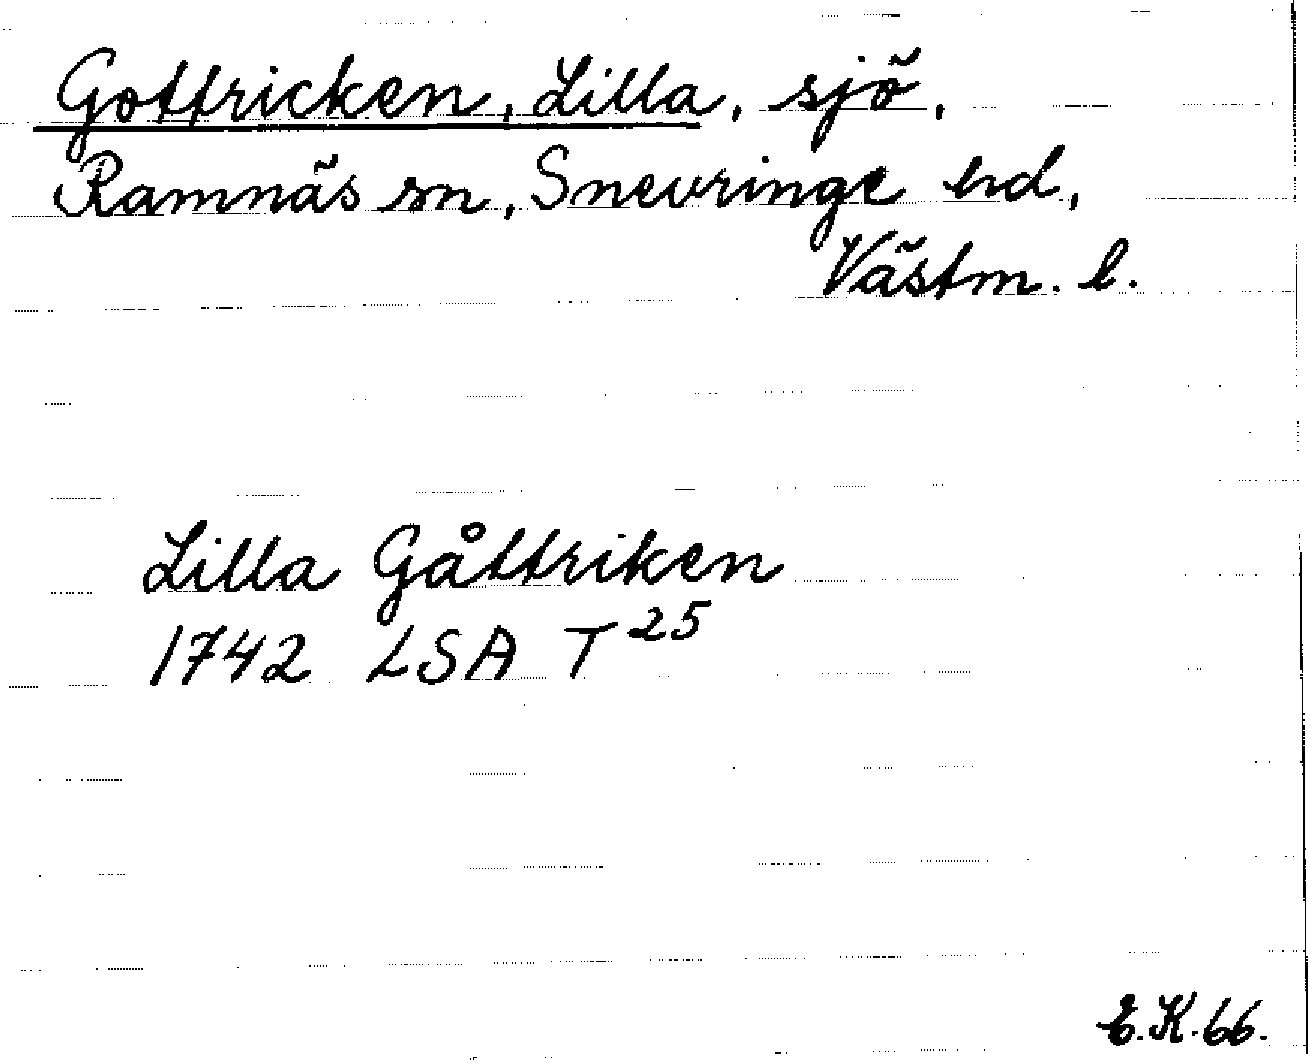 Gottricken, Lilla, sjö,
Ramnäs sn, Snevringe hd,
Västm. l.
Lilla Gåttriken
1742 LSA T 25
E.K. 66.